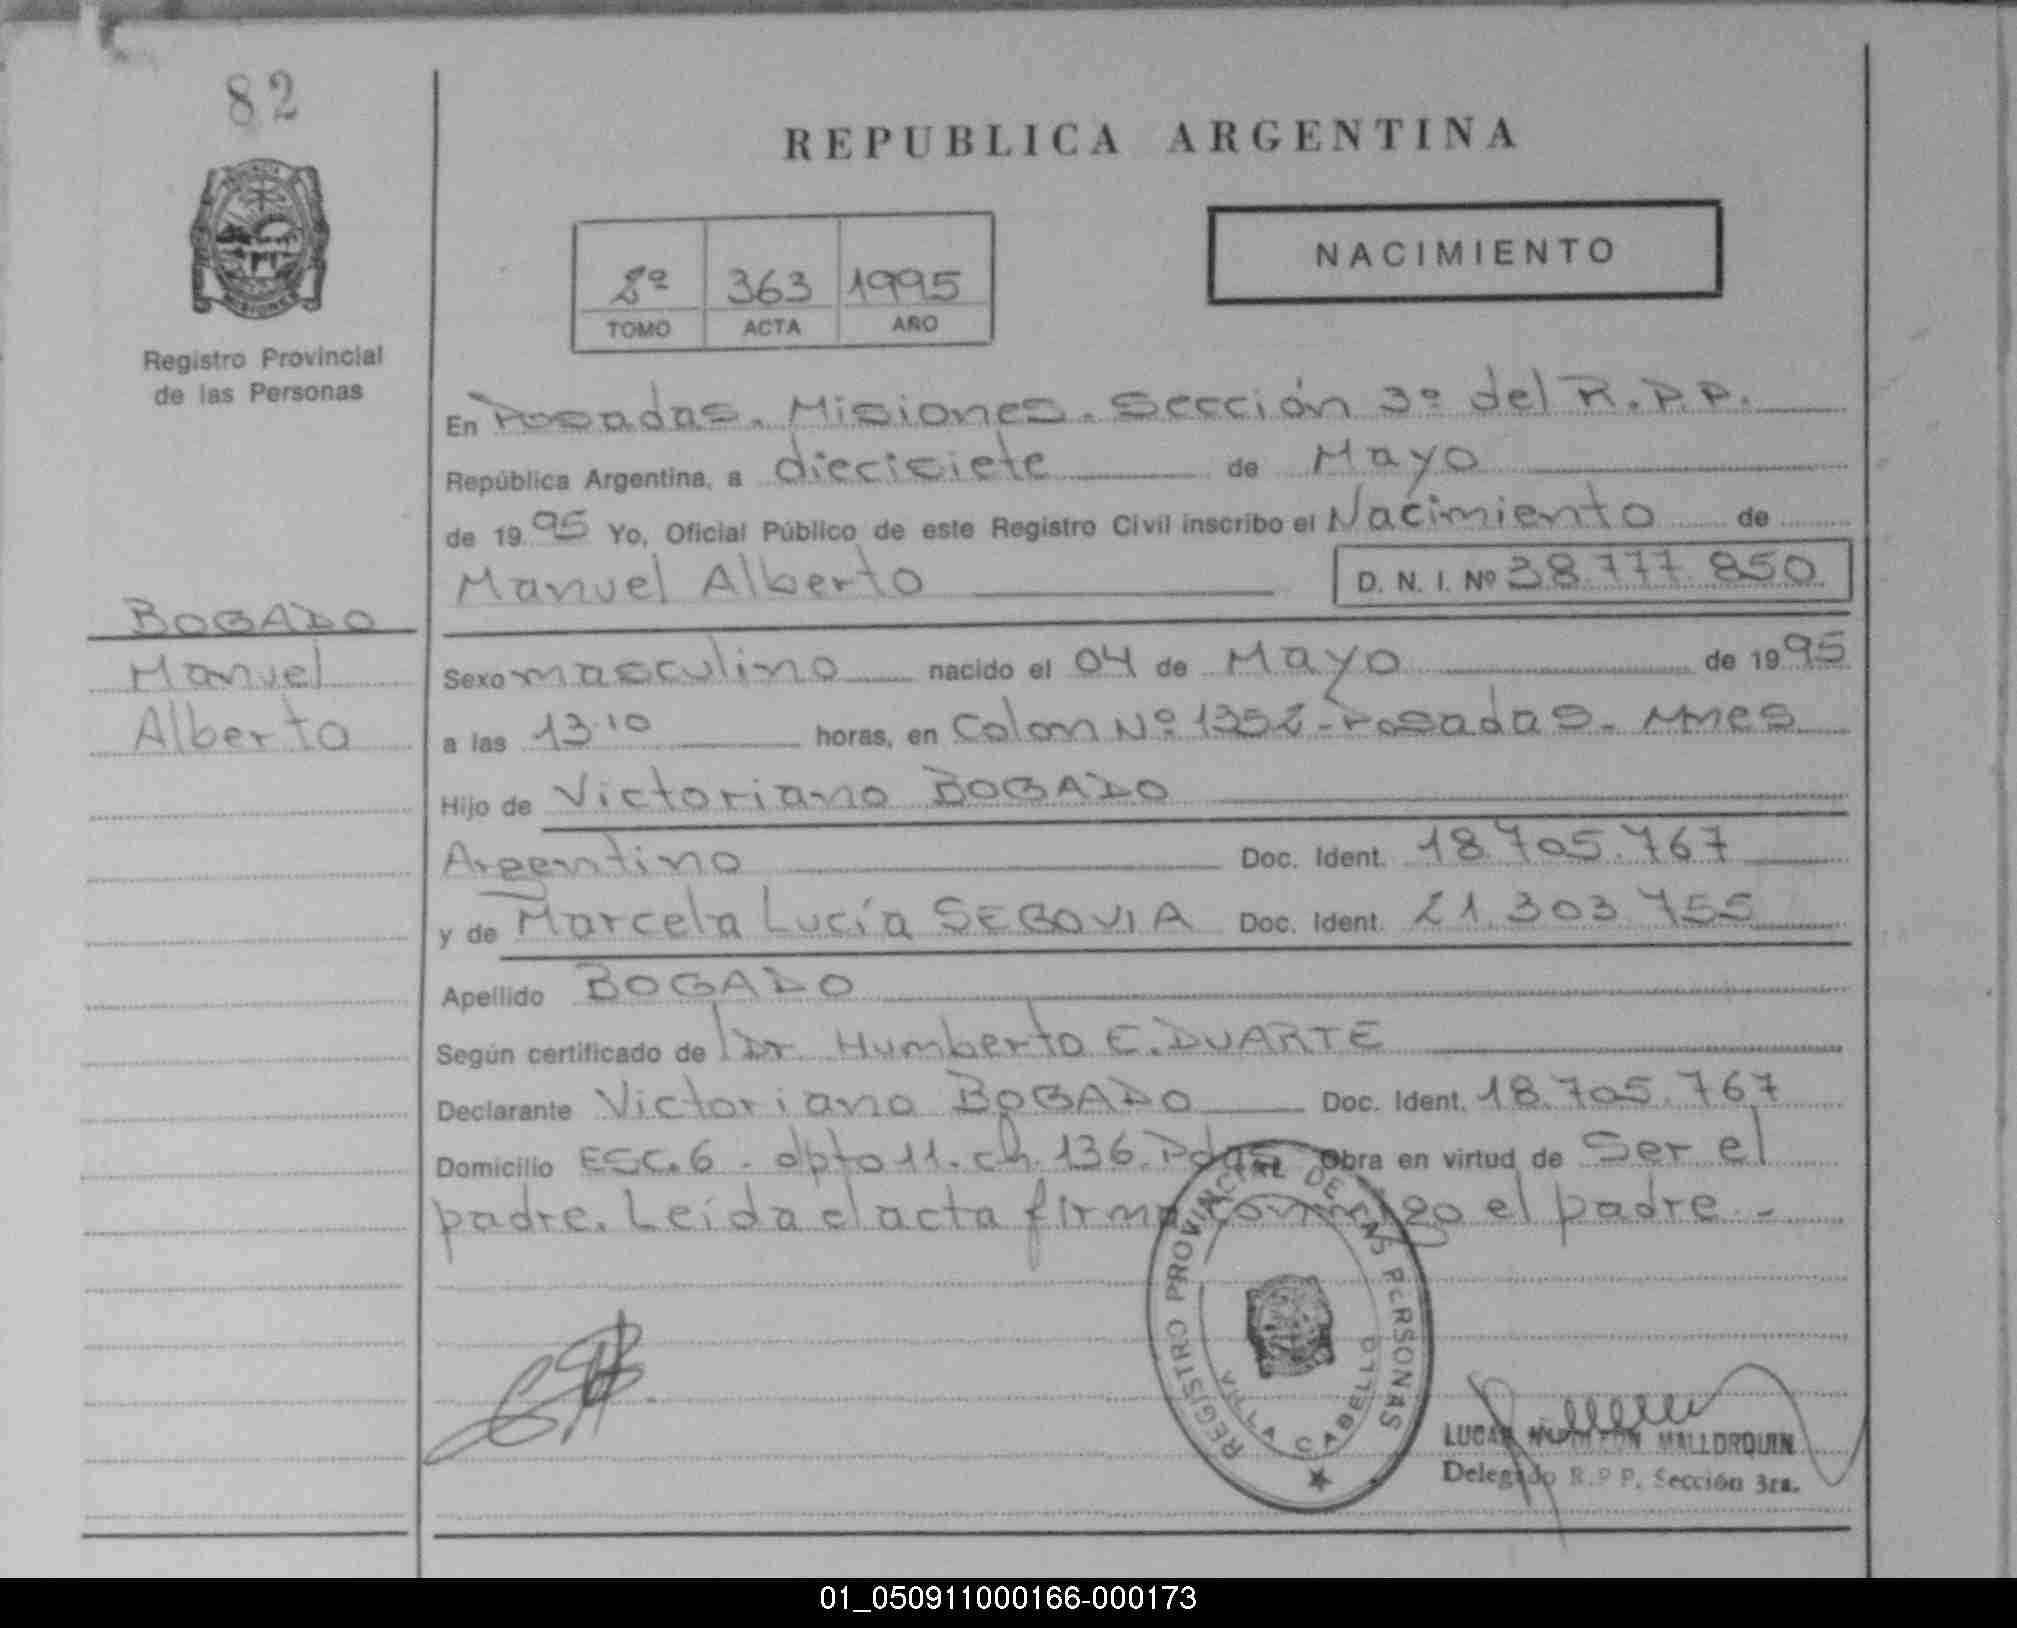 82
REPUBLICA ARGENTINA
NACIMIENTO
2º 363 1995
TOMO ACTA AÑO
Registro Provincial
de las Personas
En Posadas. Misiones. Sección 3º del R.P.P.
República Argentina, a diecisiete de Mayo
de 1995 Yo, Oficial Público de este Registro Civil inscribo el Nacimiento de
Manuel Alberto D. N. I. Nº 38.777.850
BOGADO
Manuel
Alberto
Sexo masculino nacido el 04 de Mayo de 1995
a las 13.10 horas, en Colon Nº 1352 - Posadas - Mnes
Hijo de Victoriano BOGADO
Argentino Doc. Ident. 18.705.767
y de Marcela Lucía SEGOVIA Doc. Ident. 21.303.755
Apellido BOGADO
Según certificado de Dr. Humberto C. DUARTE
Declarante Victoriano BOGADO Doc. Ident. 18.705.767
Domicilio ESC. 6 - dpto 11. ch. 136. Pdas Obra en virtud de Ser el
padre. Leída el acta firma conmigo el padre. -
REGISTRO PROVINCIAL DE LAS PERSONAS
VILLA CABELLO
LUCAS MALLORQUIN
Delegado R.P.P. Sección 3ra.
01_050911000166-000173